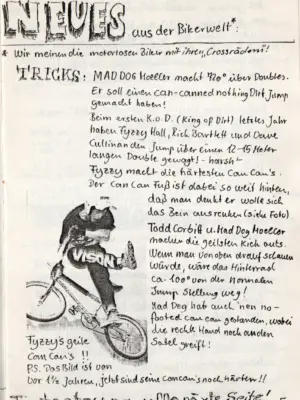 NEUES aus der Bikerwelt*:
* Wir meinen die motorlosen Biker mit ihren „Crossrädern"!
TRICKS: MAD DOG Hoeller macht 420° über Doubles.
Er soll einen can-canned nothing Dirt Jump
gemacht haben!
Beim ersten K.o.D. (King of Dirt) letztes Jahr
haben Fyzzy Hall, Rich Bartlett und Dave
Cullinan den Jump über einen 12-15 Meter
langen Double gewagt! - harsh -
Fyzzy macht die härtesten Can Can's.
Der Can Can Fuß ist dabei so weit hinten,
daß man denkt er wolle sich
das Bein ausreuken (siehe Foto)
Todd Corbitt u. Mad Dog Hoeller
machen die geilsten Kick outs.
Wenn man von oben drauf schauen
würde, wäre das Hinterrad
ca. 100° von der normalen
Jump Stellung weg!
Mad Dog hat auch 'nen no-
footed can can gestanden, wobei
die rechte Hand noch an den
Sattel greift!
VISION
Fyzzy's geile
Can Can's !!
P.S. Das Bild ist von
vor 1½ Jahren, jetzt sind seine can can's noch härter!!
nächste Seite!